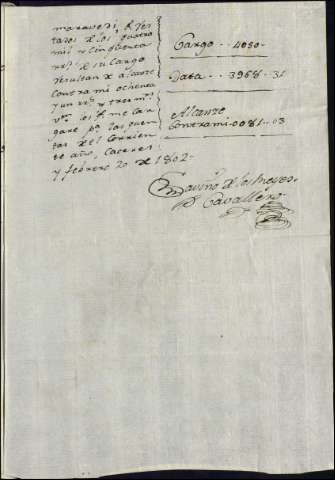 maravedis, q.e res-
tados de los quatro
mil y cinquenta
rr.s de su cargo
resultan de alcanze
contra mi ochenta
y un rr.s y tres m.s
v.n q.e me car
gare p.a las quen
tas del corrien
te año, Caceres
y febrero 20 de 1802-
Cargo - - 4050-
Data - - 3968-31
Alcanze
contra mi-0081-03
de los Reyes
Cavallero